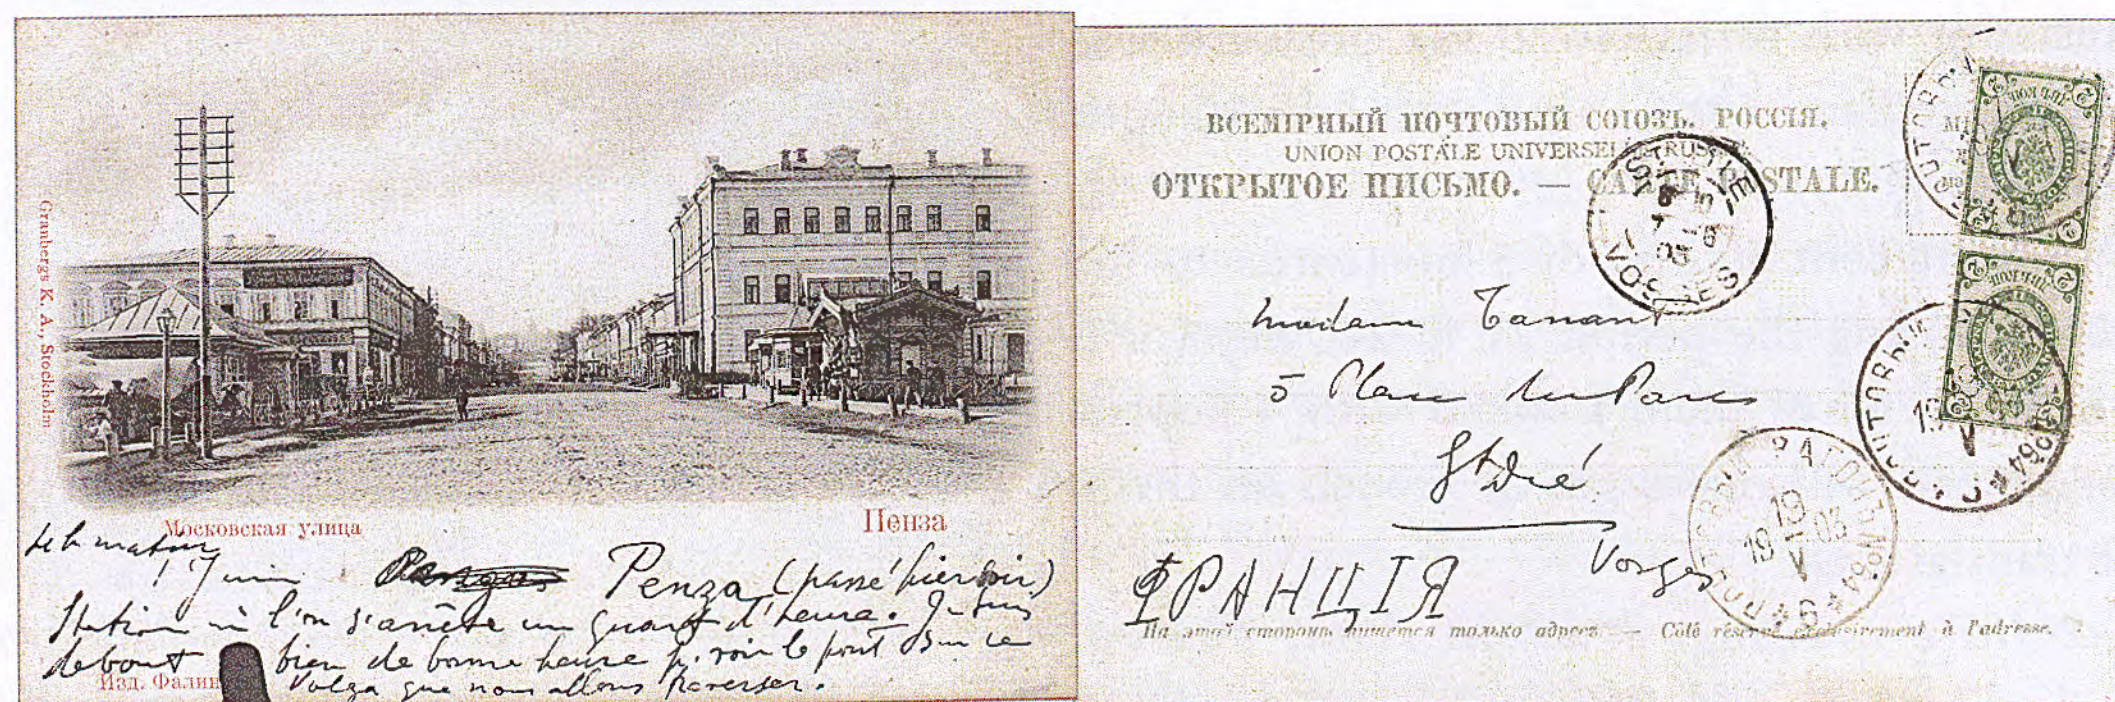 Granbergs K. A., Stockholm
Московская улица
Пенза
matin
1 Juin Penza (passé hier soir)
Station où l'on s'arrête un quart d'heure. Je suis
debout bien de bonne heure p. voir le pont sur le
Volga que nous allons traverser.
Изд. Фалин
ВСЕМІРНЫЙ ПОЧТОВЫЙ СОЮЗЪ. РОССІЯ.
UNION POSTALE UNIVERSELLE. RUSSIE
ОТКРЫТОЕ ПИСЬМО. — CARTE POSTALE.
ST DIE
VOSGES
Madame Tanant
5 Place du Parc
St Dié
Vosges
ФРАНЦІЯ
ПОЧТОВЫЙ ВАГОНЪ № 64
19
19 03
V
6
На этой сторонѣ пишется только адресъ. — Côté réservé exclusivement à l'adresse.